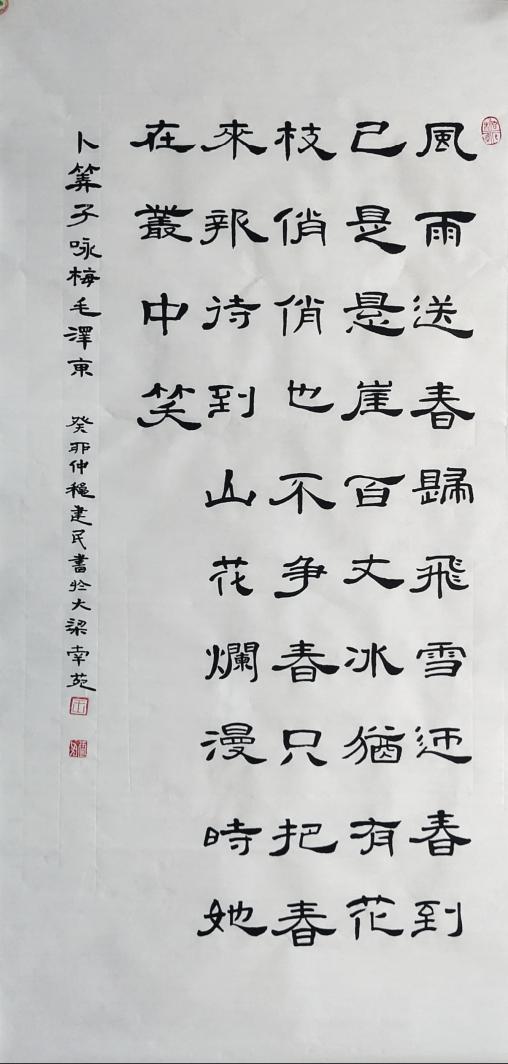 風雨送春歸飛雪迎春到
已是悬崖百丈冰猶有花
枝俏俏也不争春只把春
來報待到山花爛漫時她
在叢中笑
卜算子咏梅毛澤東 癸卯仲穐建民書於大梁南苑